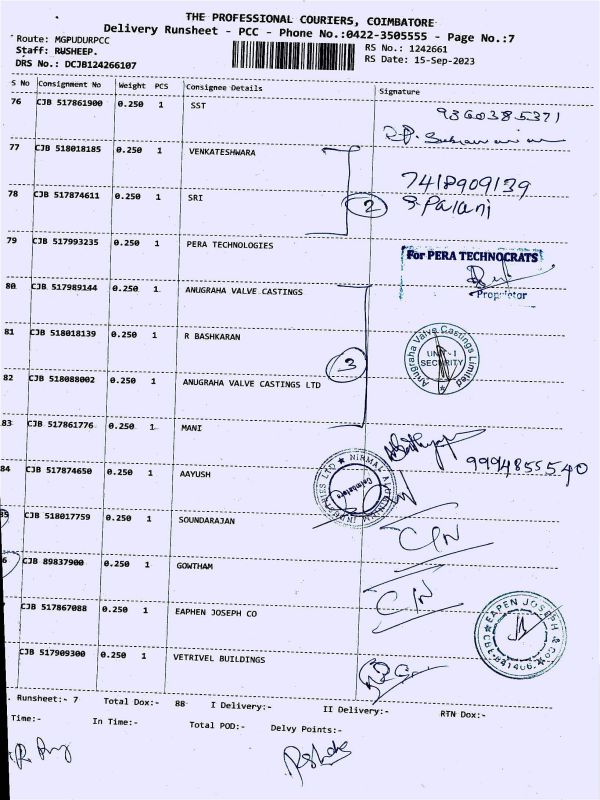 THE PROFESSIONAL COURIERS, COIMBATORE
Delivery Runsheet - PCC - Phone No.:0422-3505555 - Page No.:7
Route: MGPUDURPCC
RS No.: 1242661
Staff: RUSHEEP.
RS Date: 15-Sep-2023
DRS No.: DCJB124266107
S No Consignment No Weight PCS Consignee Details Signature
76 CJB 517861900 0.250 1 SST
9360385371
77 CJB 518018185 0.250 1 VENKATESHWARA
7418909139
78 CJB 517874611 0.250 1 SRI
2
S. Palani
79 CJB 517993235 0.250 1 PERA TECHNOLOGIES
For PERA TECHNOCRATS
Proprietor
80 CJB 517989144 0.250 1 ANUGRAHA VALVE CASTINGS
81 CJB 518018139 0.250 1 R BASHKARAN
Anugraha Valve Castings Limited
UNIT-I
SECURITY
3
82 CJB 518088002 0.250 1 ANUGRAHA VALVE CASTINGS LTD
83 CJB 517861776 0.250 1 MANI
9994855540
84 CJB 517874650 0.250 1 AAYUSH
Coimbatore
85 CJB 518017759 0.250 1 SOUNDARAJAN
6 CJB 89837900 0.250 1 GOWTHAM
CJB 517867088 0.250 1 EAPHEN JOSEPH CO
EAPEN JOSEPH & CO
CBE-641406
CJB 517909300 0.250 1 VETRIVEL BUILDINGS
. Runsheet:- 7 Total Dox:- 88 I Delivery:- II Delivery:- RTN Dox:-
Time:- In Time:- Total POD:- Delvy Points:-